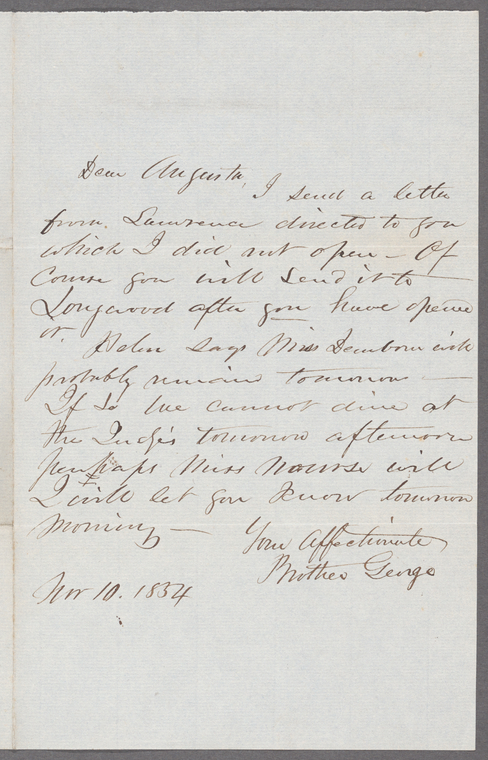 Dear Augusta,
I send a letter
from Lawrence directed to you
which I did not open - Of
Course you will send it to
Longwood after you have opened
it. Helen says Miss Dearborn will
probably remain tomorrow —
If so we cannot dine at
the Judge's tomorrow afternoon
perhaps Miss Nourse will
I will let you know tomorrow
morning —
Your Affectionate
Brother George
Nov 10. 1854